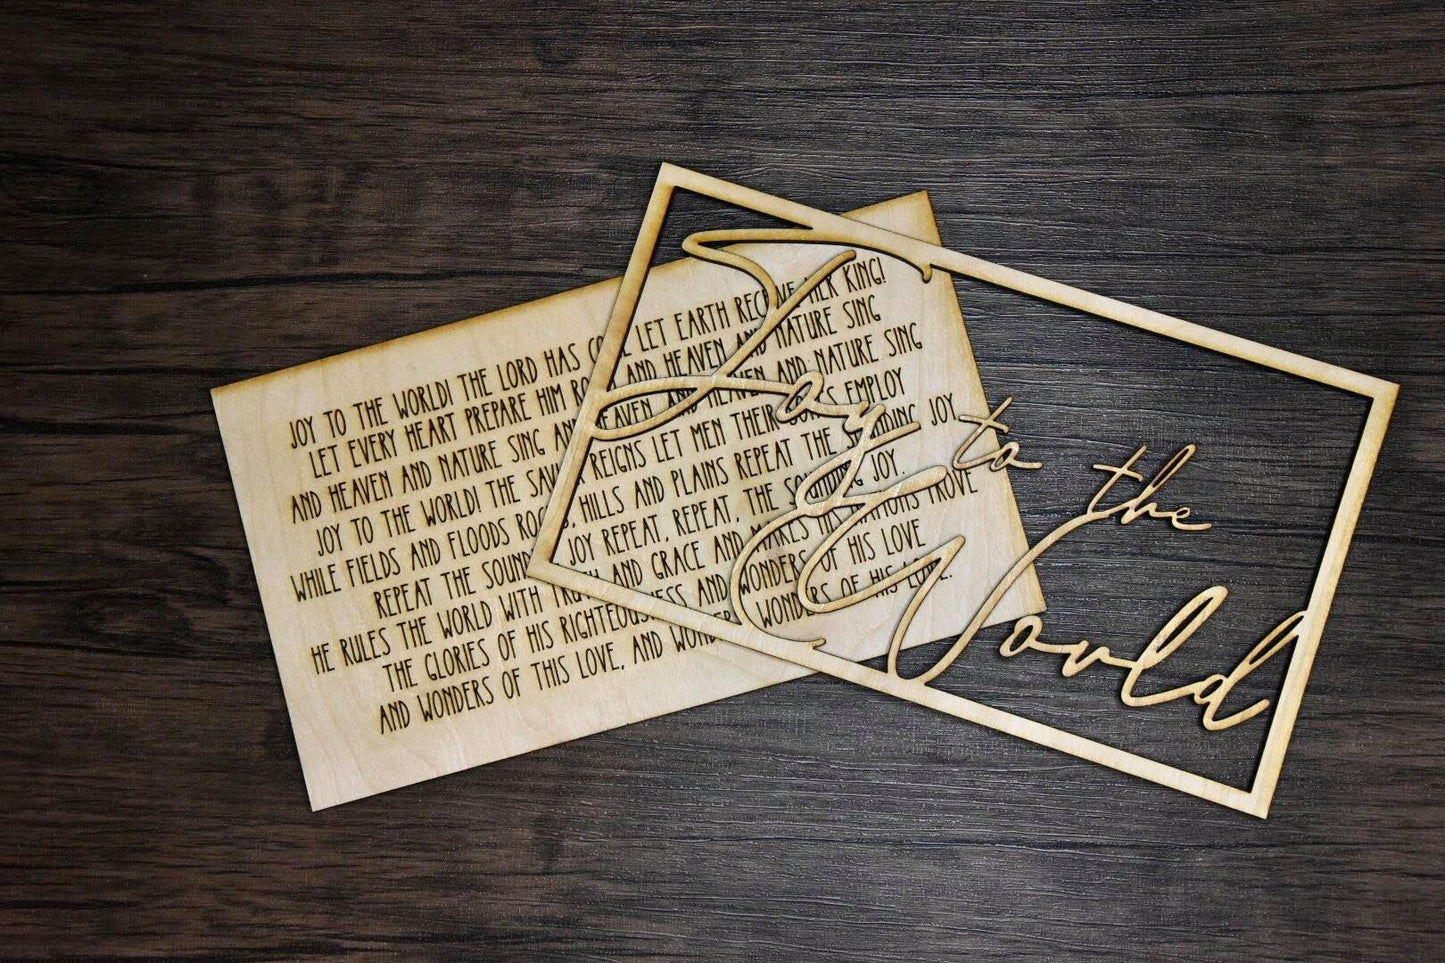 JOY TO THE WORLD! THE LORD HAS COME LET EARTH RECEIVE HER KING!
LET EVERY HEART PREPARE HIM ROOM AND HEAVEN AND NATURE SING
AND HEAVEN AND NATURE SING AND HEAVEN, AND HEAVEN AND NATURE SING
JOY TO THE WORLD! THE SAVIOR REIGNS LET MEN THEIR SONGS EMPLOY
WHILE FIELDS AND FLOODS ROCKS, HILLS AND PLAINS REPEAT THE SOUNDING JOY
REPEAT THE SOUNDING JOY REPEAT, REPEAT, THE SOUNDING JOY.
HE RULES THE WORLD WITH TRUTH AND GRACE AND MAKES HIS NATIONS PROVE
THE GLORIES OF HIS RIGHTEOUSNESS AND WONDERS OF HIS LOVE
AND WONDERS OF THIS LOVE, AND WONDERS WONDERS OF HIS LOVE.
Joy to the
World